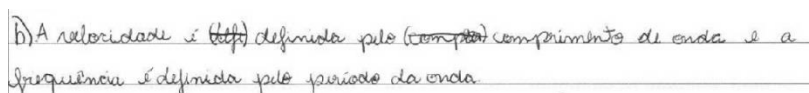 b) A velocidade é (defi) definida pelo (compta) comprimento de onda e a
frequência é definida pelo período da onda